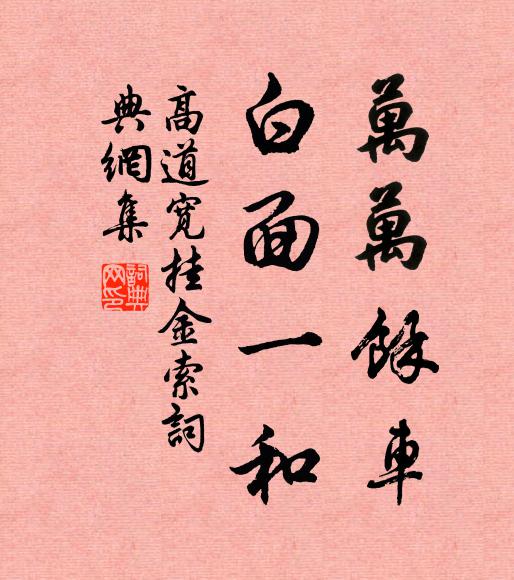 萬萬餘車
白面一和
高道寬挂金索詞
典網集
詞典网印